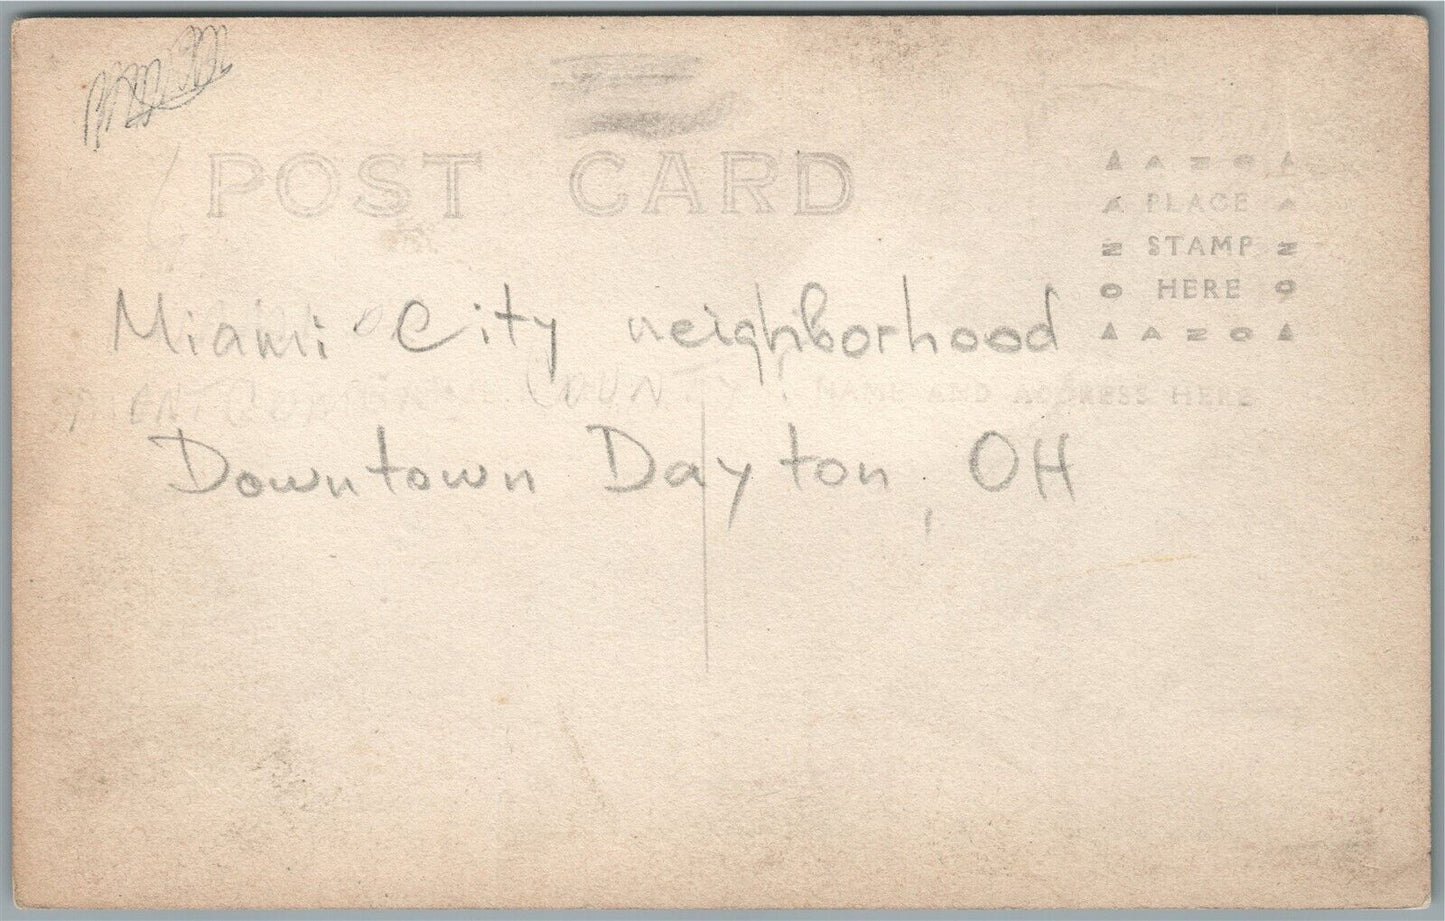 POST CARD
▲ A N O ▲
A PLACE A
N STAMP N
O HERE O
▲ A N O ▲
Miami City neighborhood
COUNTY NAME AND ADDRESS HERE
Downtown Dayton, OH